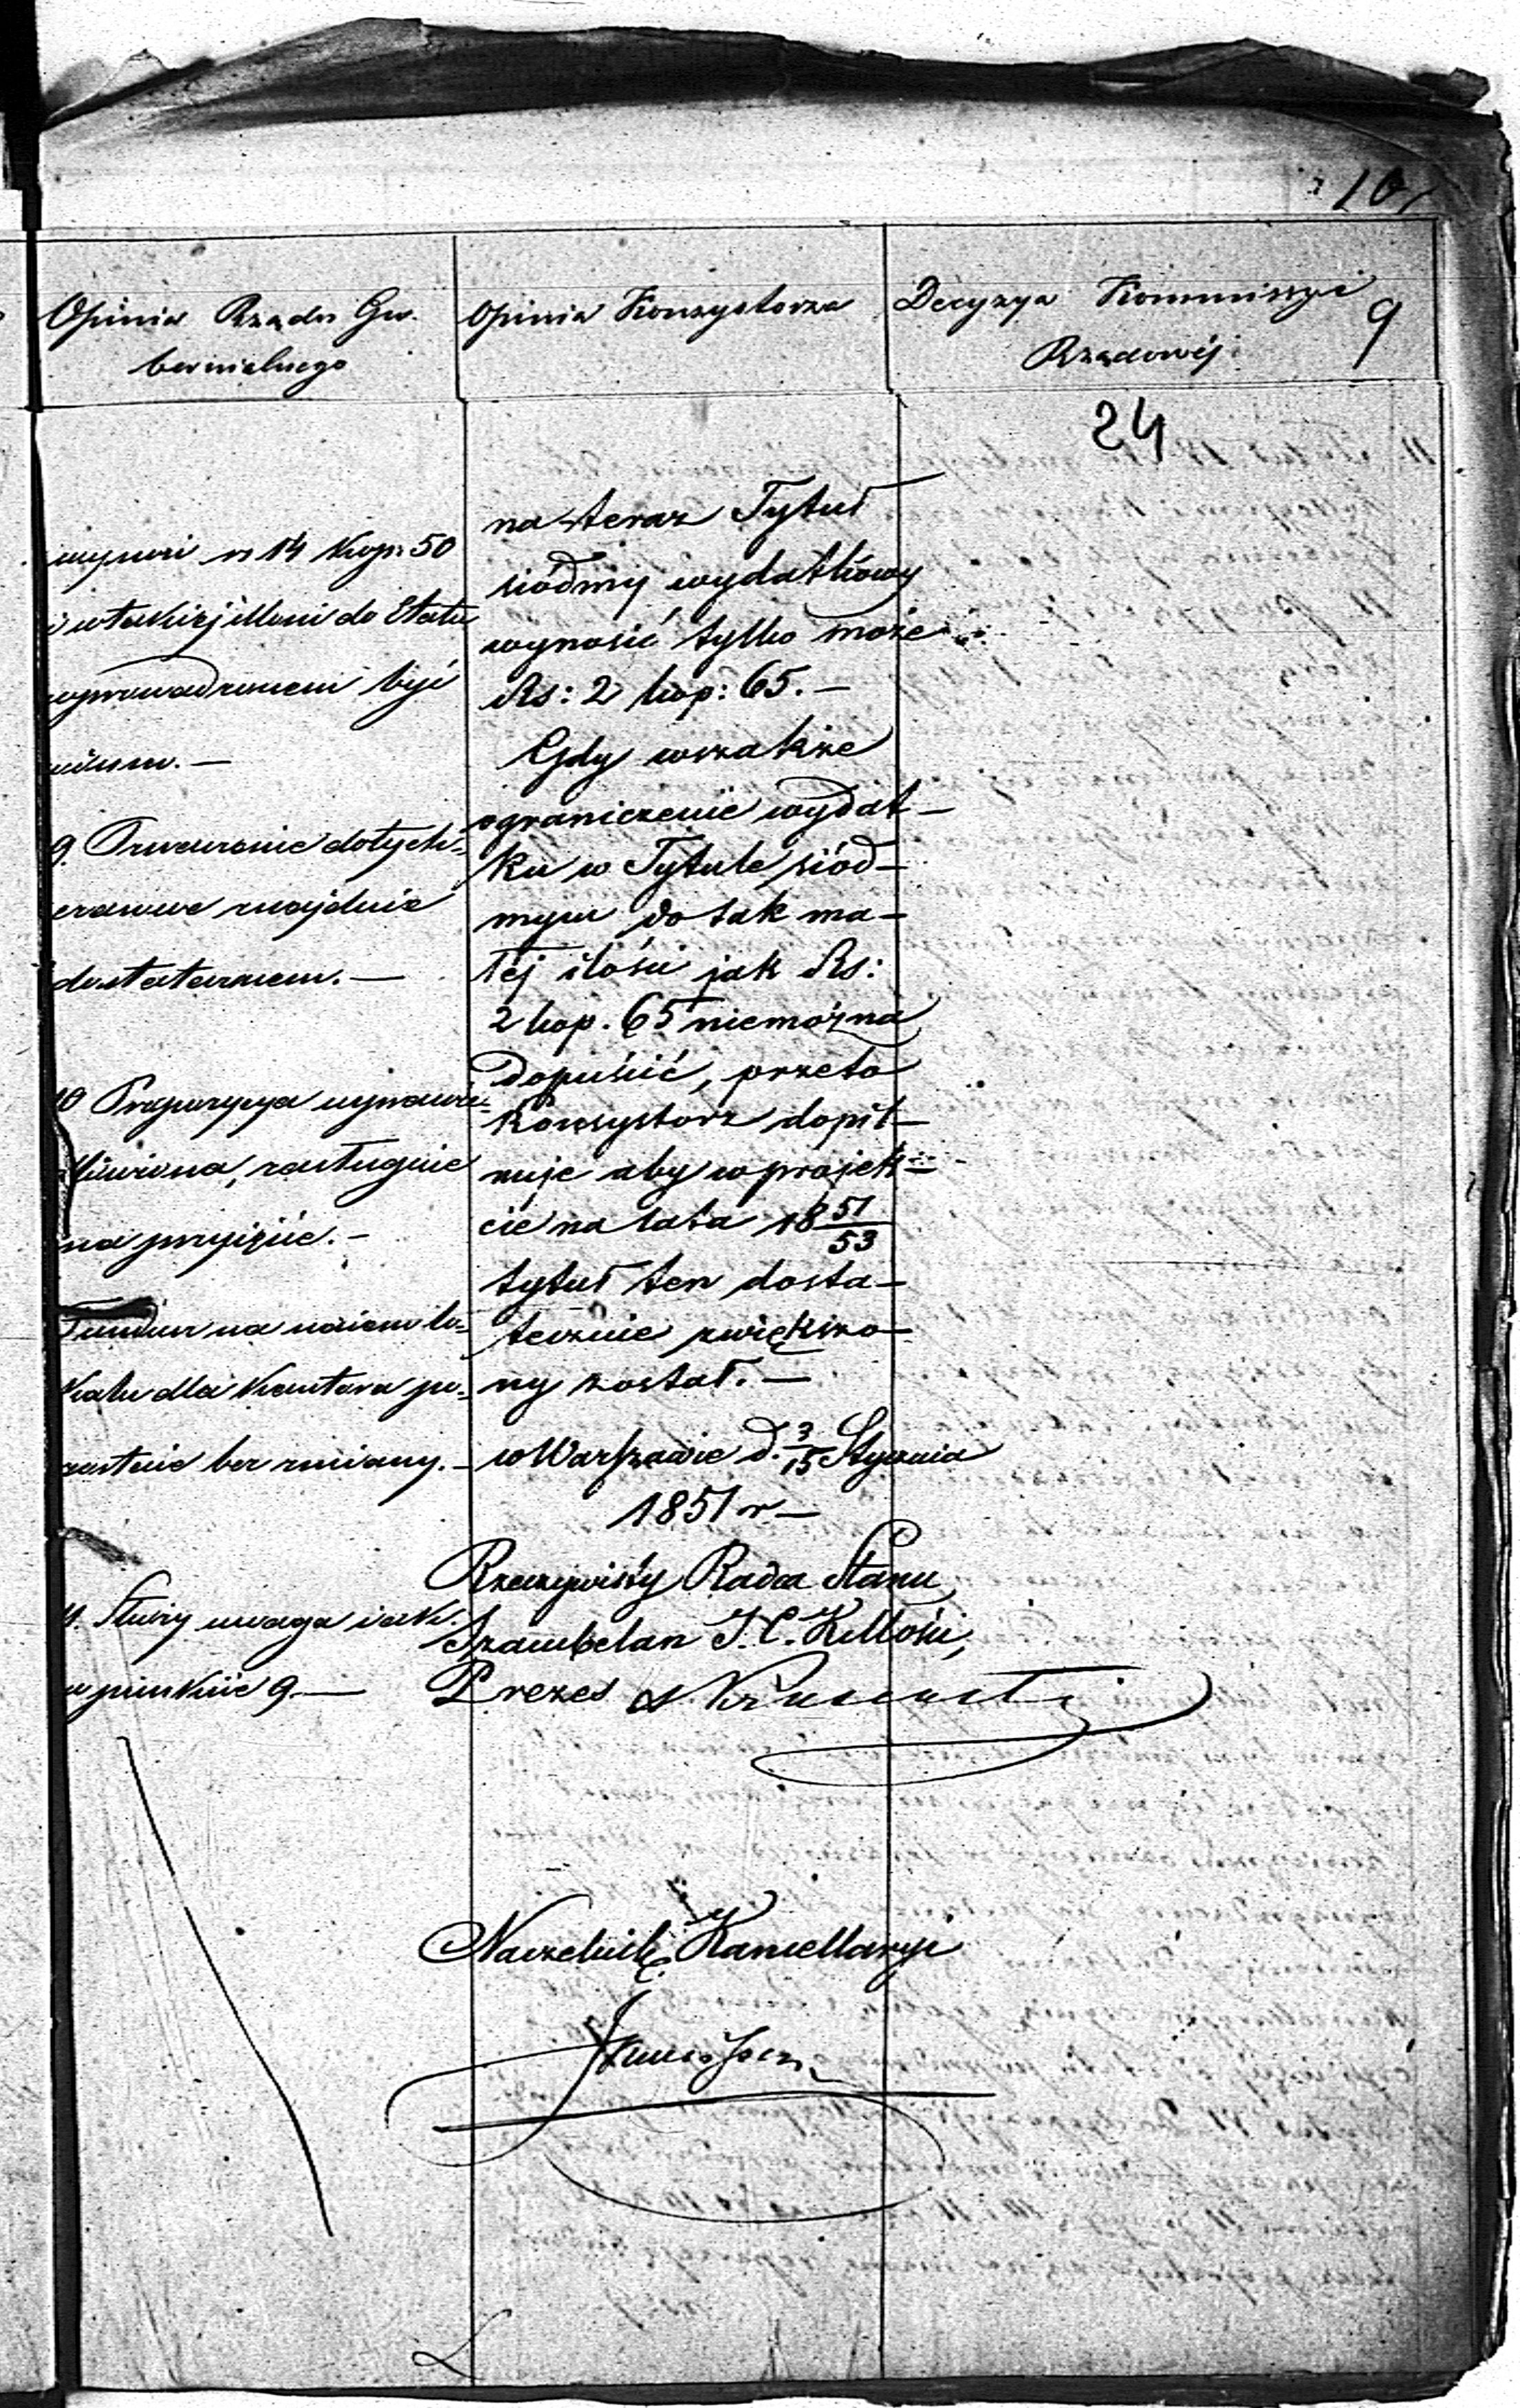 10
Opinia Rządu Gu-
bernialnego
Opinia Konsystorza
Decyzya Kommissyi
Rządowéj
9
24
wynosi rs 14 kop. 50
i w takiej illoici do Etatu
wprowadzonem być
winna. —
9. Oznaczenie dotych-
czasowe znajduje
dostatecznem. —
10 Propozycya usprawie-
dliwiona, zasługuje
na przyjęcie. —
Fundusz na najem lo-
kalu dla Kantora po-
zostaie bez zmiany. —
11. Służy uwaga iak
w punkcie 9. —
na teraz Tytuł
siódmy wydatkowy
wynosić tylko może
Rs: 2 kop: 65. —
Gdy wszakże
ograniczenie wydat-
ku w Tytule siód-
mym do tak ma-
łéj ilości jak Rs:
2 kop. 65 niemożna
dopuścić, przeto
Konsystorz dopil-
nuje aby w projek-
cie na lata 18 51/53
tytuł ten dosta-
tecznie zwiększo-
ny został. —
w Warszawie d. 3/15 Stycznia
1851 r —
Rzeczywisty Radca Stanu,
Szambelan J. C. K. Mości,
Prezes
Naczelnik Kancellaryi